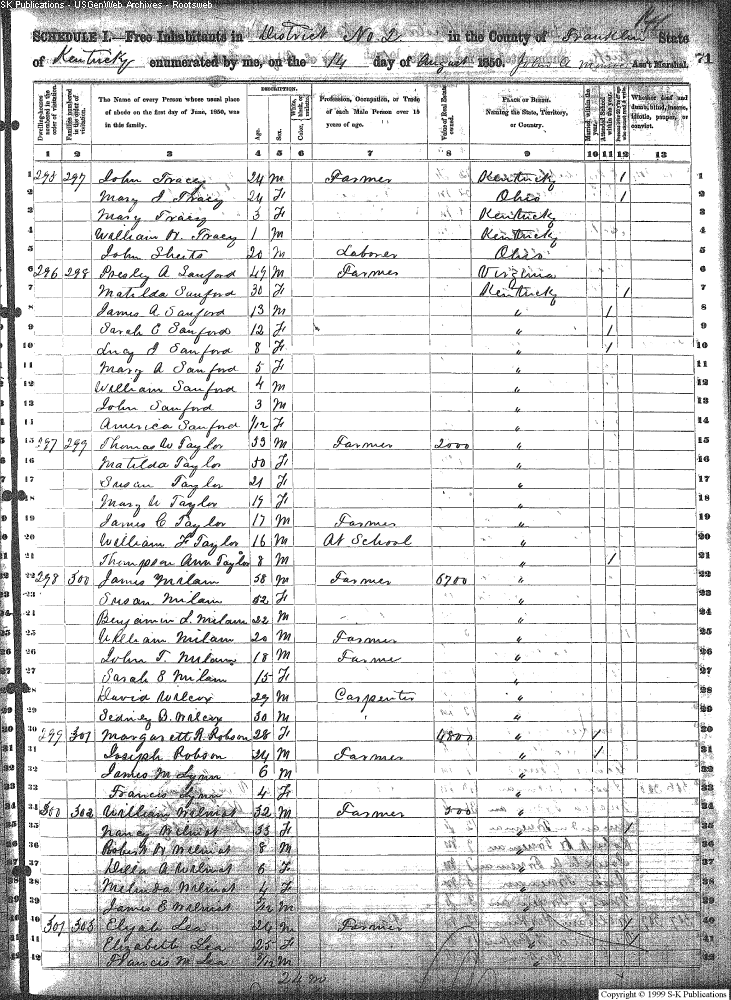 SK Publications - USGenWeb Archives - Rootsweb
SCHEDULE I.—Free Inhabitants in District No 2 in the County of Franklin State
of Kentucky enumerated by me, on the 14 day of August 1850. Ass't Marshal. 71
Dwelling-houses numbered in the order of visitation. Families numbered in the order of visitation. The Name of every Person whose usual place of abode on the first day of June, 1850, was in this family. DESCRIPTION. Age. Sex. Color, White, black, or mulatto. Profession, Occupation, or Trade of each Male Person over 15 years of age. Value of Real Estate owned. PLACE OF BIRTH. Naming the State, Territory, or Country. Married within the year. Attended School within the year. Whether deaf and dumb, blind, insane, idiotic, pauper, or convict.
1 2 3 4 5 6 7 8 9 10 11 12 13
1 295 297 John Tracy 24 M Farmer Kentucky 1 1
2 Mary J Tracy 24 F Ohio 1 2
3 Mary Tracy 3 F Kentucky 3
4 William H. Tracy 1 M Kentucky 4
5 John Sheets 20 M Laborer Ohio 5
6 296 298 Presley A Sanford 49 M Farmer Virginia 6
7 Matilda Sanford 30 F Kentucky 1 7
8 James A Sanford 13 M " 1 8
9 Sarah C Sanford 12 F " 1 9
10 Lucy J Sanford 8 F " 1 10
11 Mary A Sanford 5 F " 11
12 William Sanford 4 M " 12
13 John Sanford 3 M " 13
14 America Sanford 1/12 F " 14
15 297 299 Thomas W Taylor 53 M Farmer 2000 " 15
16 Matilda Taylor 50 F " 16
17 Susan Taylor 21 F " 17
18 Mary Taylor 19 F " 18
19 James C Taylor 17 M Farmer " 19
20 William F Taylor 16 M At School " 20
21 Thompson Ann Taylor 8 M " 1 21
22 298 300 James Milam 58 M Farmer 5700 " 22
23 Susan Milam 52 F " 23
24 Benjamin L. Milam 22 M " 24
25 William Milam 20 M Farmer " 25
26 John T. Milam 18 M Farmer " 26
27 Sarah E Milam 15 F " 27
28 David Wilcox 29 M Carpenter " 28
29 Sedney B. Wilcox 30 M " 29
30 299 301 Margarett R. Robson 28 F 4800 " 1 30
31 Joseph Robson 24 M Farmer " 1 31
32 James M Lynn 6 M " 32
33 Francis Lynn 4 F " 33
34 300 302 William Wilmot 32 M Farmer 500 " 34
35 Nancy Wilmot 33 F " 1 35
36 Robert H Wilmot 8 M " 36
37 Della A Wilmot 6 F " 37
38 Melinda Wilmot 4 F " 38
39 James E Wilmot M " 39
40 301 303 Elijah Lea 24 M Farmer " 1 40
41 Elizabeth Lea 25 F " 1 41
42 Francis M Lea M " 42
24 m
Copyright © 1999 S-K Publications